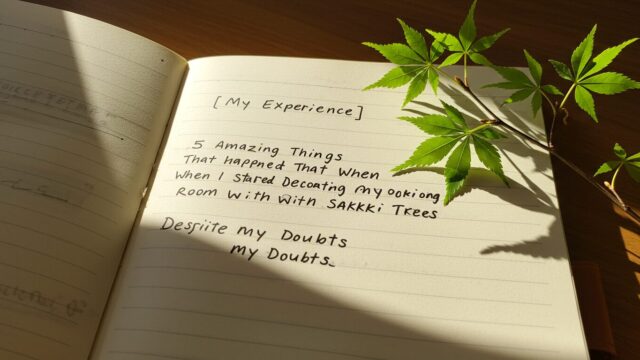 [My Experience]
5 Amazing Things
That happned That When
When I Stared Decoating my ookiong
Room With With SAKKKi Trees
Despiite my Doubts
my Doubts_